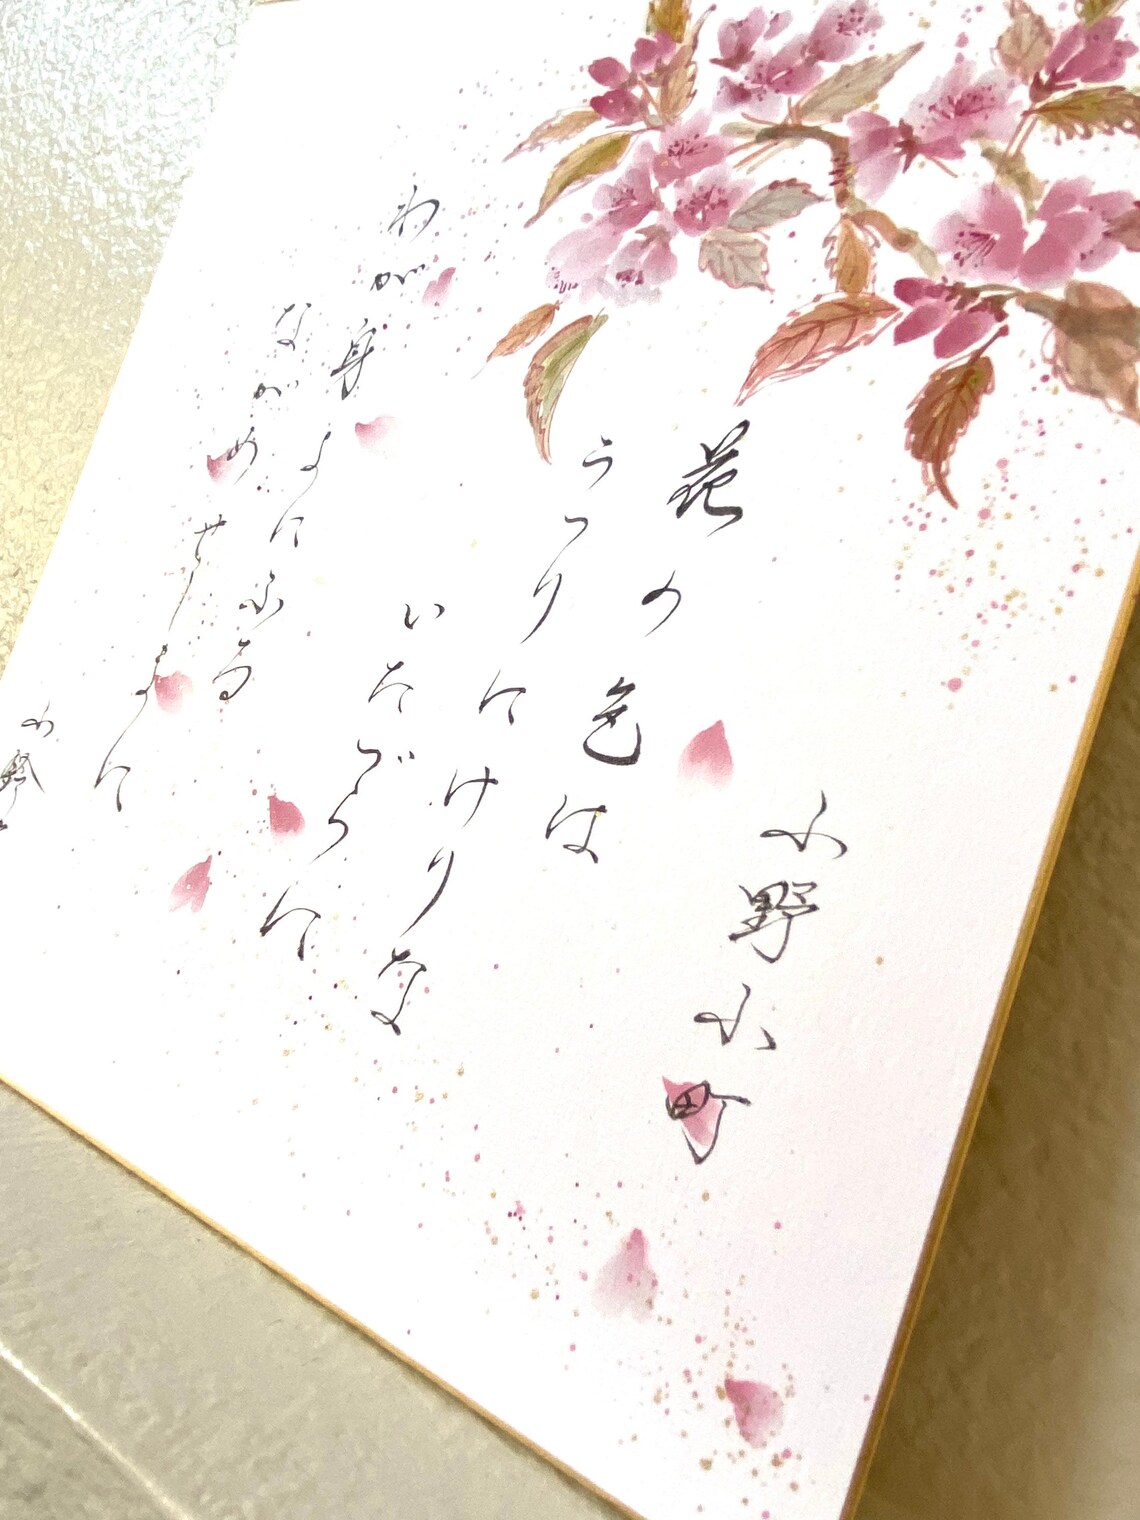 小野小町
花の色は
うつりにけりな
いたづらに
わが身よにふる
ながめせしまに